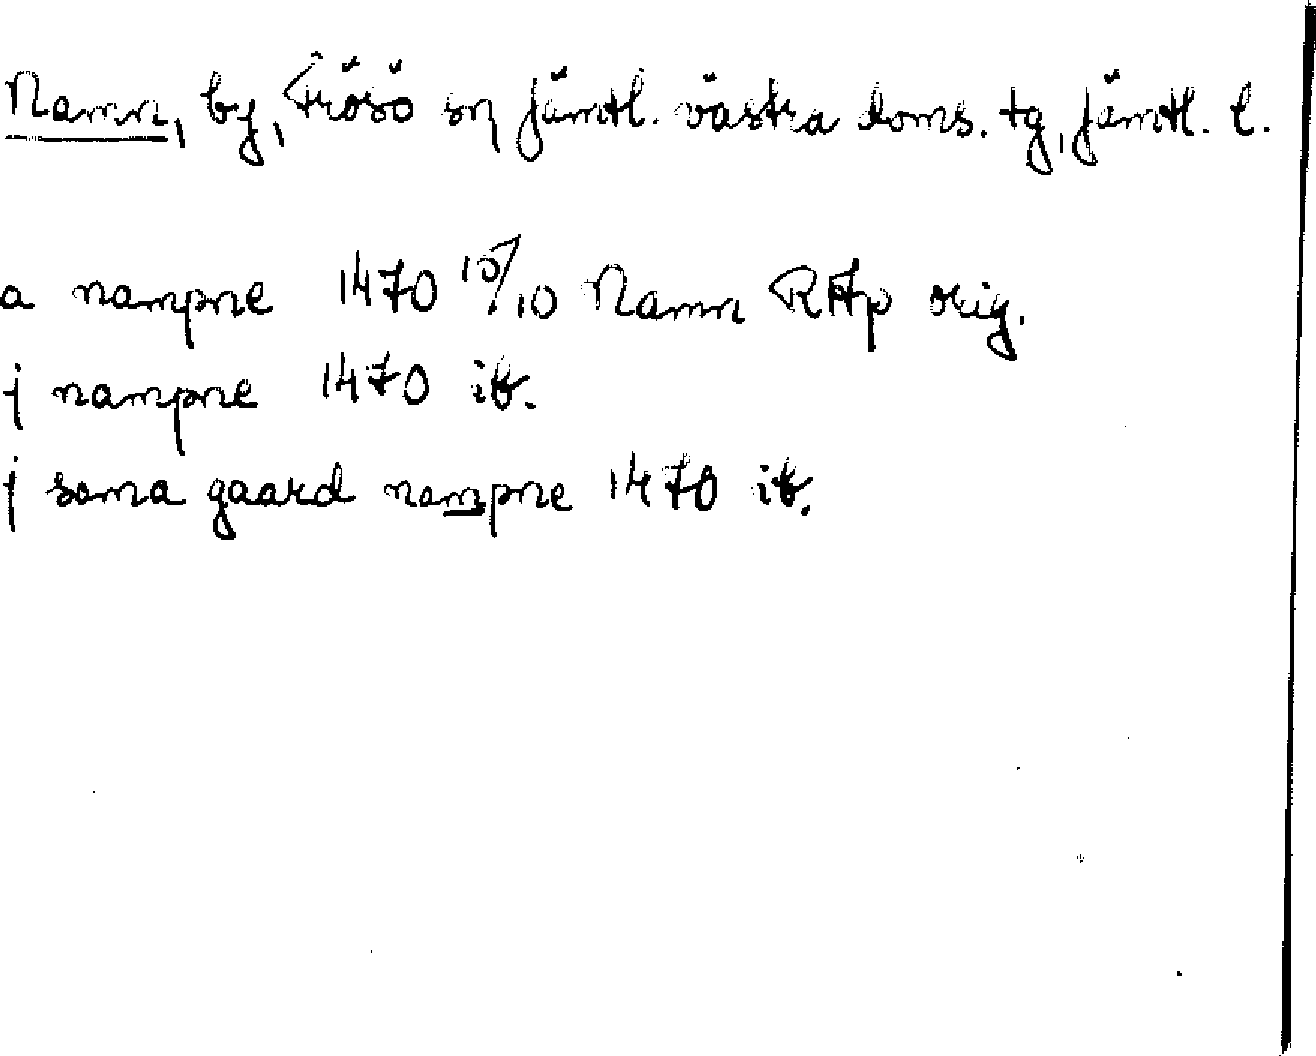 Namn, by, Frösö sn Jämtl. västra doms. tg, Jämtl. l.
a nampne 1470 10/10 Namn RAp orig.
j nampne 1470 ib.
j soma gaard nampne 1470 ib.